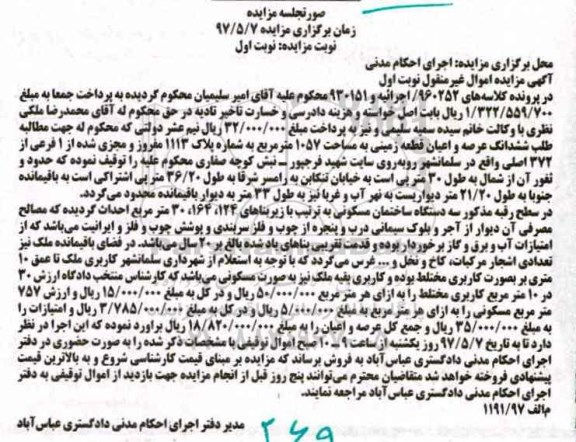 صورتجلسه مزایده
زمان برگزاری مزایده ۹۷/۵/۷
نوبت مزایده: نوبت اول
محل برگزاری مزایده: اجرای احکام مدنی
آگهی مزایده اموال غیرمنقول نوبت اول
در پرونده کلاسه‌های ۹۶۰۲۵۲/ اجرائیه و ۹۳۰۱۵۱ محکوم علیه آقای امیر سلیمیان محکوم گردیده به پرداخت جمعا به مبلغ
۱/۳۲۲/۵۵۹/۷۰۰ ریال بابت اصل خواسته و هزینه دادرسی و خسارت تاخیر تادیه در حق محکوم له آقای محمدرضا ملکی
نظری با وکالت خانم سیده سمیه سلیمی و نیز به پرداخت مبلغ ۳۲/۰۰۰/۰۰۰ ریال نیم عشر دولتی که محکوم له جهت مطالبه
طلب ششدانگ عرصه و اعیان قطعه زمینی به مساحت ۱۰۵۷ مترمربع به شماره پلاک ۱۱۱۳ مفروز و مجزی شده از ۱ فرعی از
۳۷۲ اصلی واقع در سلمانشهر روبه‌روی سایت شهید فرجپور ـ نبش کوچه صفاری محکوم علیه را توقیف نموده که حدود و
ثغور آن از شمال به طول ۳۰ متر پی است به خیابان تنکابن به رامسر شرقا به طول ۳۶/۲۰ متر پی اشتراکی است به باقیمانده
جنوبا به طول ۲۱/۲۰ متر دیواریست به نهر آب و غربا نیز به طول ۳۳ متر به دیوار باقیمانده محدود می‌گردد.
در سطح رقبه مذکور سه دستگاه ساختمان مسکونی به ترتیب با زیربناهای ۱۲۴، ۱۶۴، ۳۰ متر مربع احداث گردیده که مصالح
مصرفی آن دیوار از آجر و بلوک سیمانی درب و پنجره از چوب و فلز سربندی و پوشش چوب و فلز و ایرانیت می‌باشد که از
امتیازات آب و برق و گاز برخوردار بوده و قدمت تقریبی بناهای یاد شده بالغ بر ۲۰ سال می‌باشد. در فضای باقیمانده ملک نیز
تعدادی اشجار مرکبات، کاج و نخل و... غرس می‌گردد که با توجه به استعلام از شهرداری سلمانشهر کاربری ملک تا عمق ۱۰
متری بر بصورت کاربری مختلط بوده و کاربری بقیه ملک نیز به صورت مسکونی می‌باشد که کارشناس منتخب دادگاه ارزش ۳۰
در ۱۰ متر مربع کاربری مختلط را به ازای هر متر مربع ۵۰/۰۰۰/۰۰۰ ریال و در کل به مبلغ ۱۵/۰۰۰/۰۰۰ ریال و ارزش ۷۵۷
متر مربع مسکونی را به ازای هر متر مربع به مبلغ ۵/۰۰۰/۰۰۰ ریال و در کل به مبلغ ۳/۷۸۵/۰۰۰/۰۰۰ و امتیازات را
به مبلغ ۳۵/۰۰۰/۰۰۰ ریال و جمع کل عرصه و اعیان را به مبلغ ۱۸/۸۲۰/۰۰۰/۰۰۰ ریال براورد نموده که این اجرا در نظر
دارد تا به تاریخ ۹۷/۵/۷ روز یکشنبه از ساعت ۹ - ۱۰ صبح اموال توقیفی با مشخصات ذکر شده را به صورت حضوری در دفتر
اجرای احکام مدنی دادگستری عباس‌آباد به فروش برساند که مزایده بر مبنای قیمت کارشناسی شروع و به بالاترین قیمت
پیشنهادی فروخته خواهد شد متقاضیان محترم می‌توانند پنج روز قبل از انجام مزایده جهت بازدید از اموال توقیفی به دفتر
اجرای احکام مدنی دادگستری عباس‌آباد مراجعه نمایند.
م‌الف ۱۱۹۱/۹۷
مدیر دفتر اجرای احکام مدنی دادگستری عباس‌آباد
۲۶۹